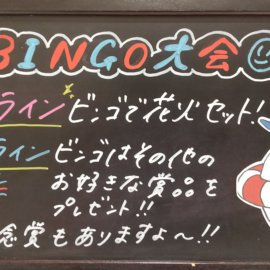 BINGO大会
ライン ビンゴで花火セット!
ライン ビンゴはその他の
お好きな賞品を
プレゼント!!
念賞もありますよ〜!!